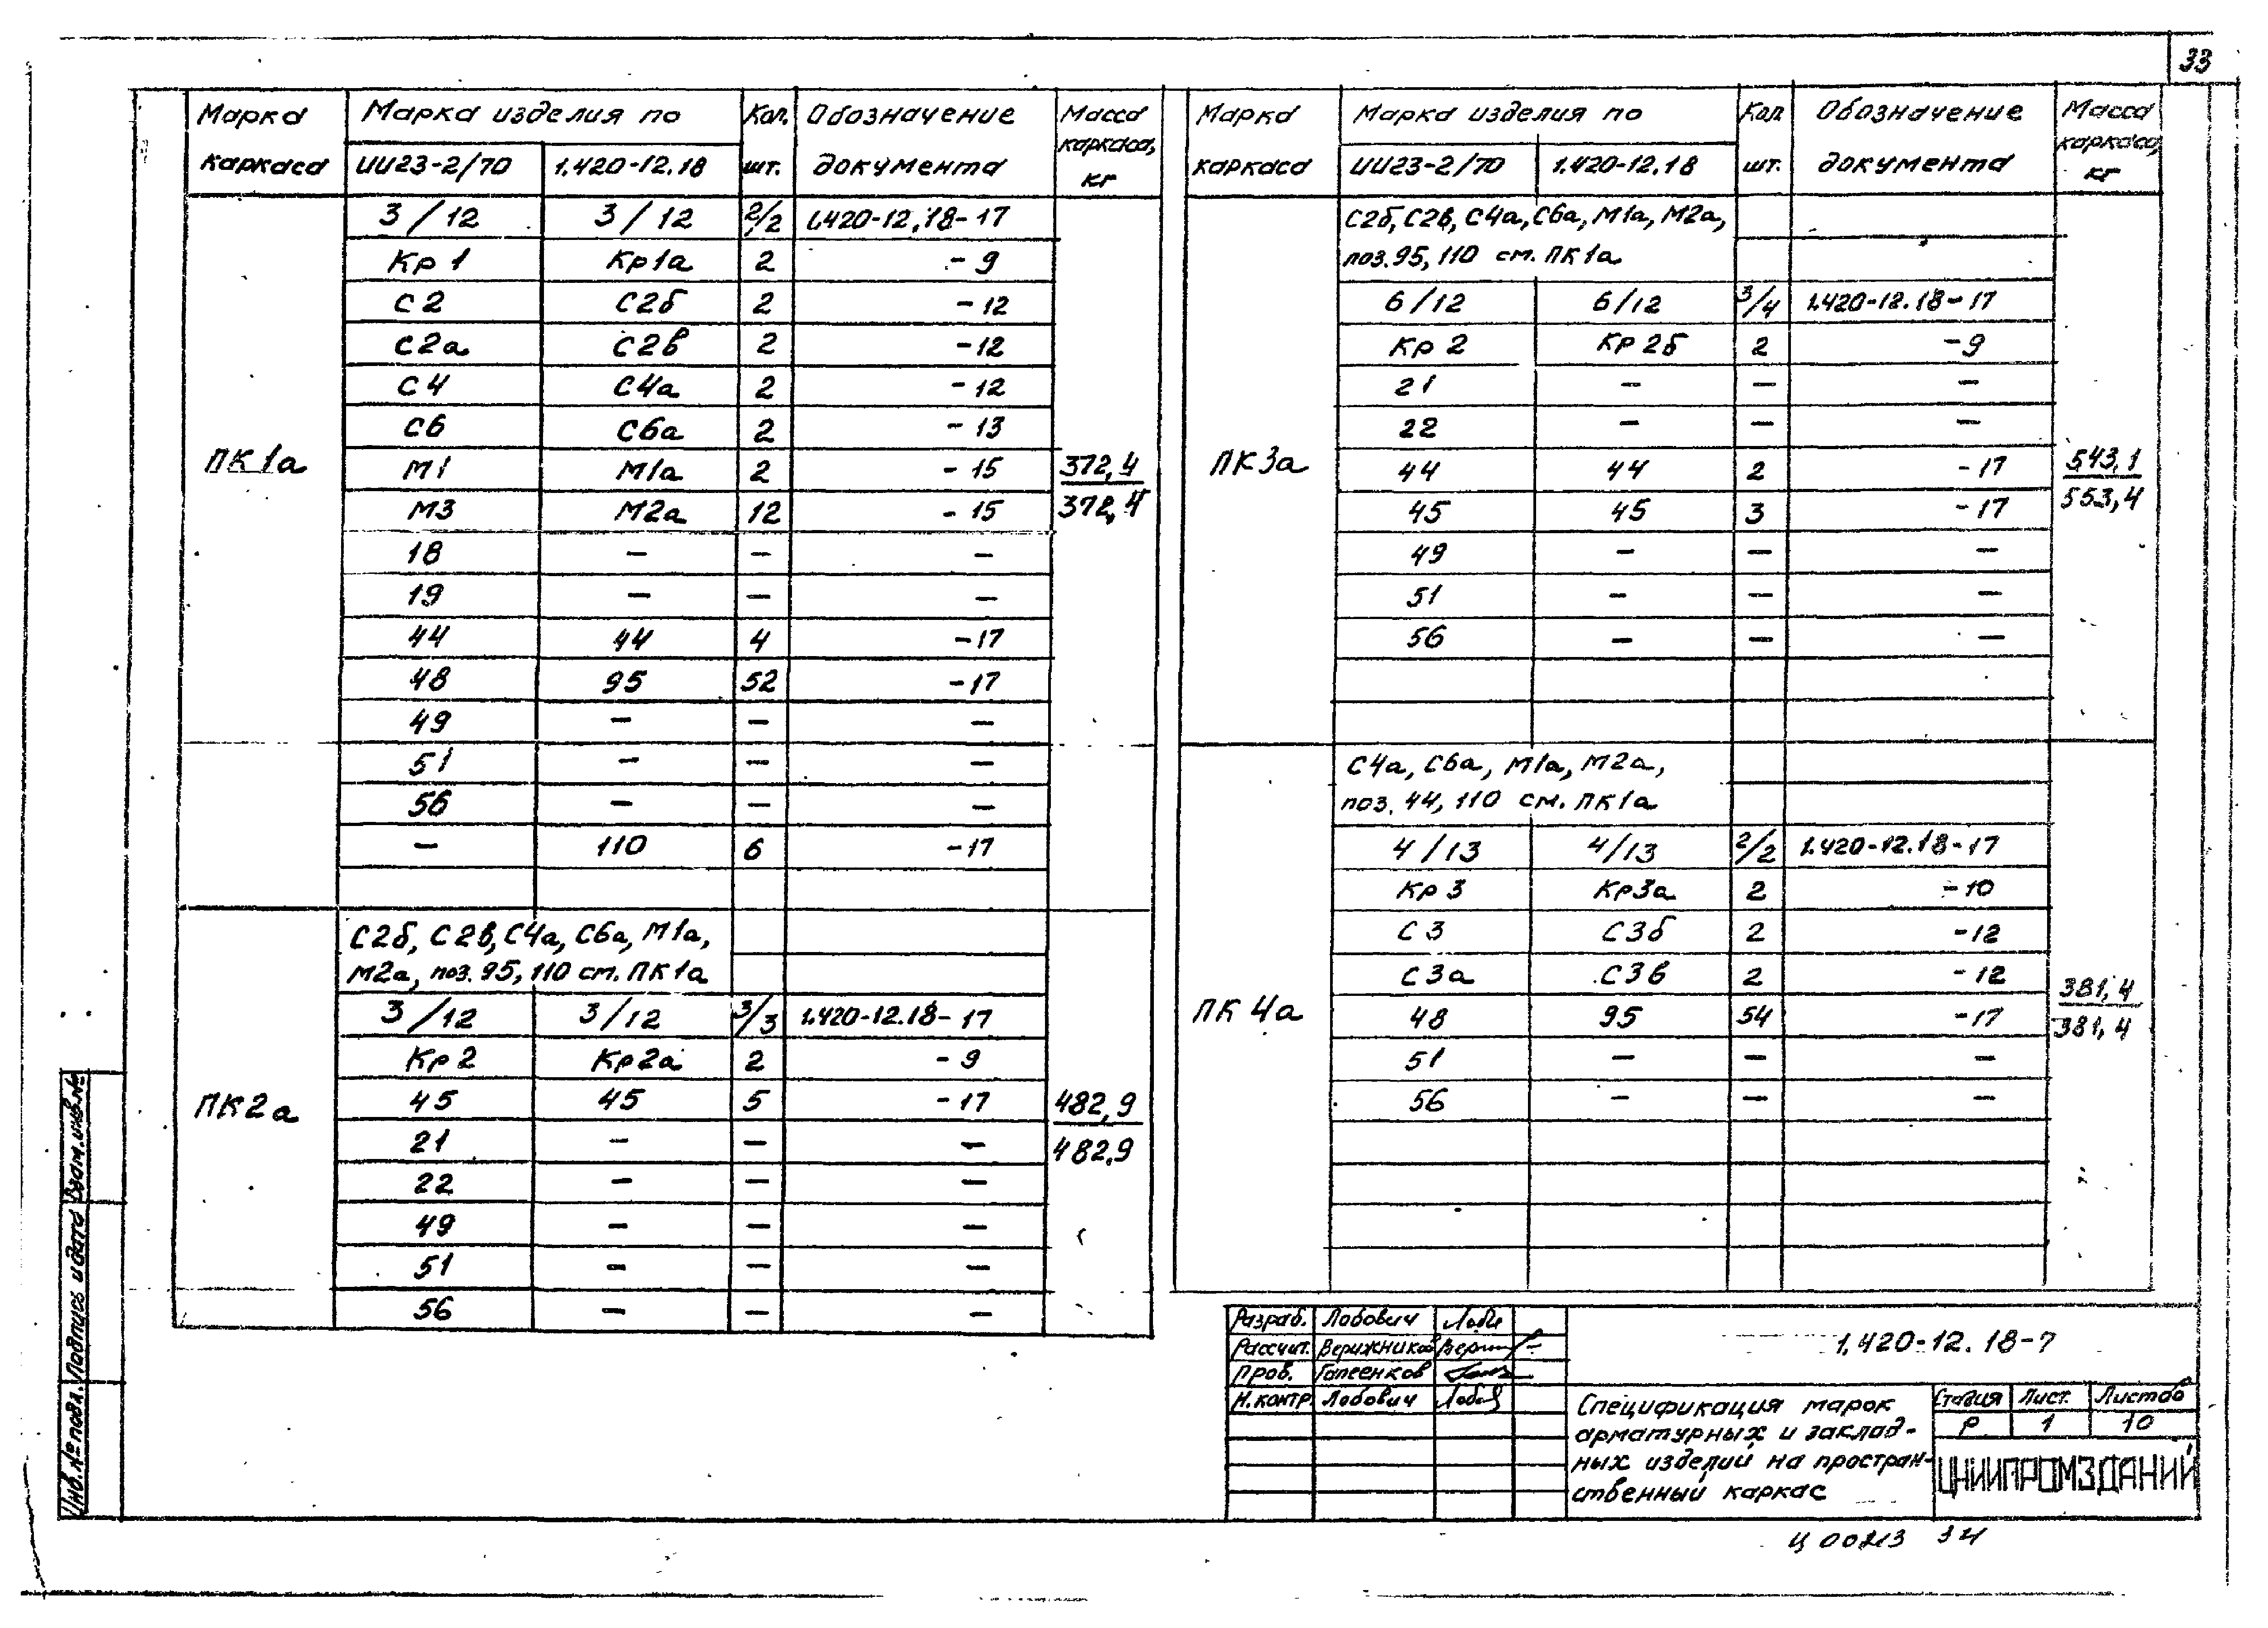 33
Марка каркаса | Марка изделия по | Кол. шт. | Обозначение документа | Масса каркаса, кг
ИИ23-2/70 | 1.420-12.18
ПК1а
3/12 | 3/12 | 2/2 | 1.420-12.18-17
Кр1 | Кр1а | 2 | -9
С2 | С2б | 2 | -12
С2а | С2в | 2 | -12
С4 | С4а | 2 | -12
С6 | С6а | 2 | -13
М1 | М1а | 2 | -15
М3 | М2а | 12 | -15
18 | – | – | –
19 | – | – | –
44 | 44 | 4 | -17
48 | 95 | 52 | -17
49 | – | – | –
51 | – | – | –
56 | – | – | –
– | 110 | 6 | -17
372,4
372,4
ПК2а
С2б, С2в, С4а, С6а, М1а,
М2а, поз. 95, 110 см. ПК1а
3/12 | 3/12 | 3/3 | 1.420-12.18-17
Кр2 | Кр2а | 2 | -9
45 | 45 | 5 | -17
21 | – | – | –
22 | – | – | –
49 | – | – | –
51 | – | – | –
56 | – | – | –
482,9
482,9
Марка каркаса | Марка изделия по | Кол. шт. | Обозначение документа | Масса каркаса, кг
ИИ23-2/70 | 1.420-12.18
ПК3а
С2б, С2в, С4а, С6а, М1а, М2а,
поз. 95, 110 см. ПК1а
6/12 | 6/12 | 3/4 | 1.420-12.18-17
Кр2 | Кр2б | 2 | -9
21 | – | – | –
22 | – | – | –
44 | 44 | 2 | -17
45 | 45 | 3 | -17
49 | – | – | –
51 | – | – | –
56 | – | – | –
543,1
553,4
ПК4а
С4а, С6а, М1а, М2а,
поз. 44, 110 см. ПК1а
4/13 | 4/13 | 2/2 | 1.420-12.18-17
Кр3 | Кр3а | 2 | -10
С3 | С3б | 2 | -12
С3а | С3в | 2 | -12
48 | 95 | 54 | -17
51 | – | – | –
56 | – | – | –
381,4
381,4
Разраб. Лобович
Рассчит. Верижников
Пров. Гапеенков
Н.контр. Лобович
1.420-12.18-7
Спецификация марок
арматурных и заклад-
ных изделий на простран-
ственный каркас
Стадия Лист. Листов
Р 1 10
ЦНИИПРОМЗДАНИЙ
Ц00213 34
Инв.№подл. Подпись и дата Взам.инв.№